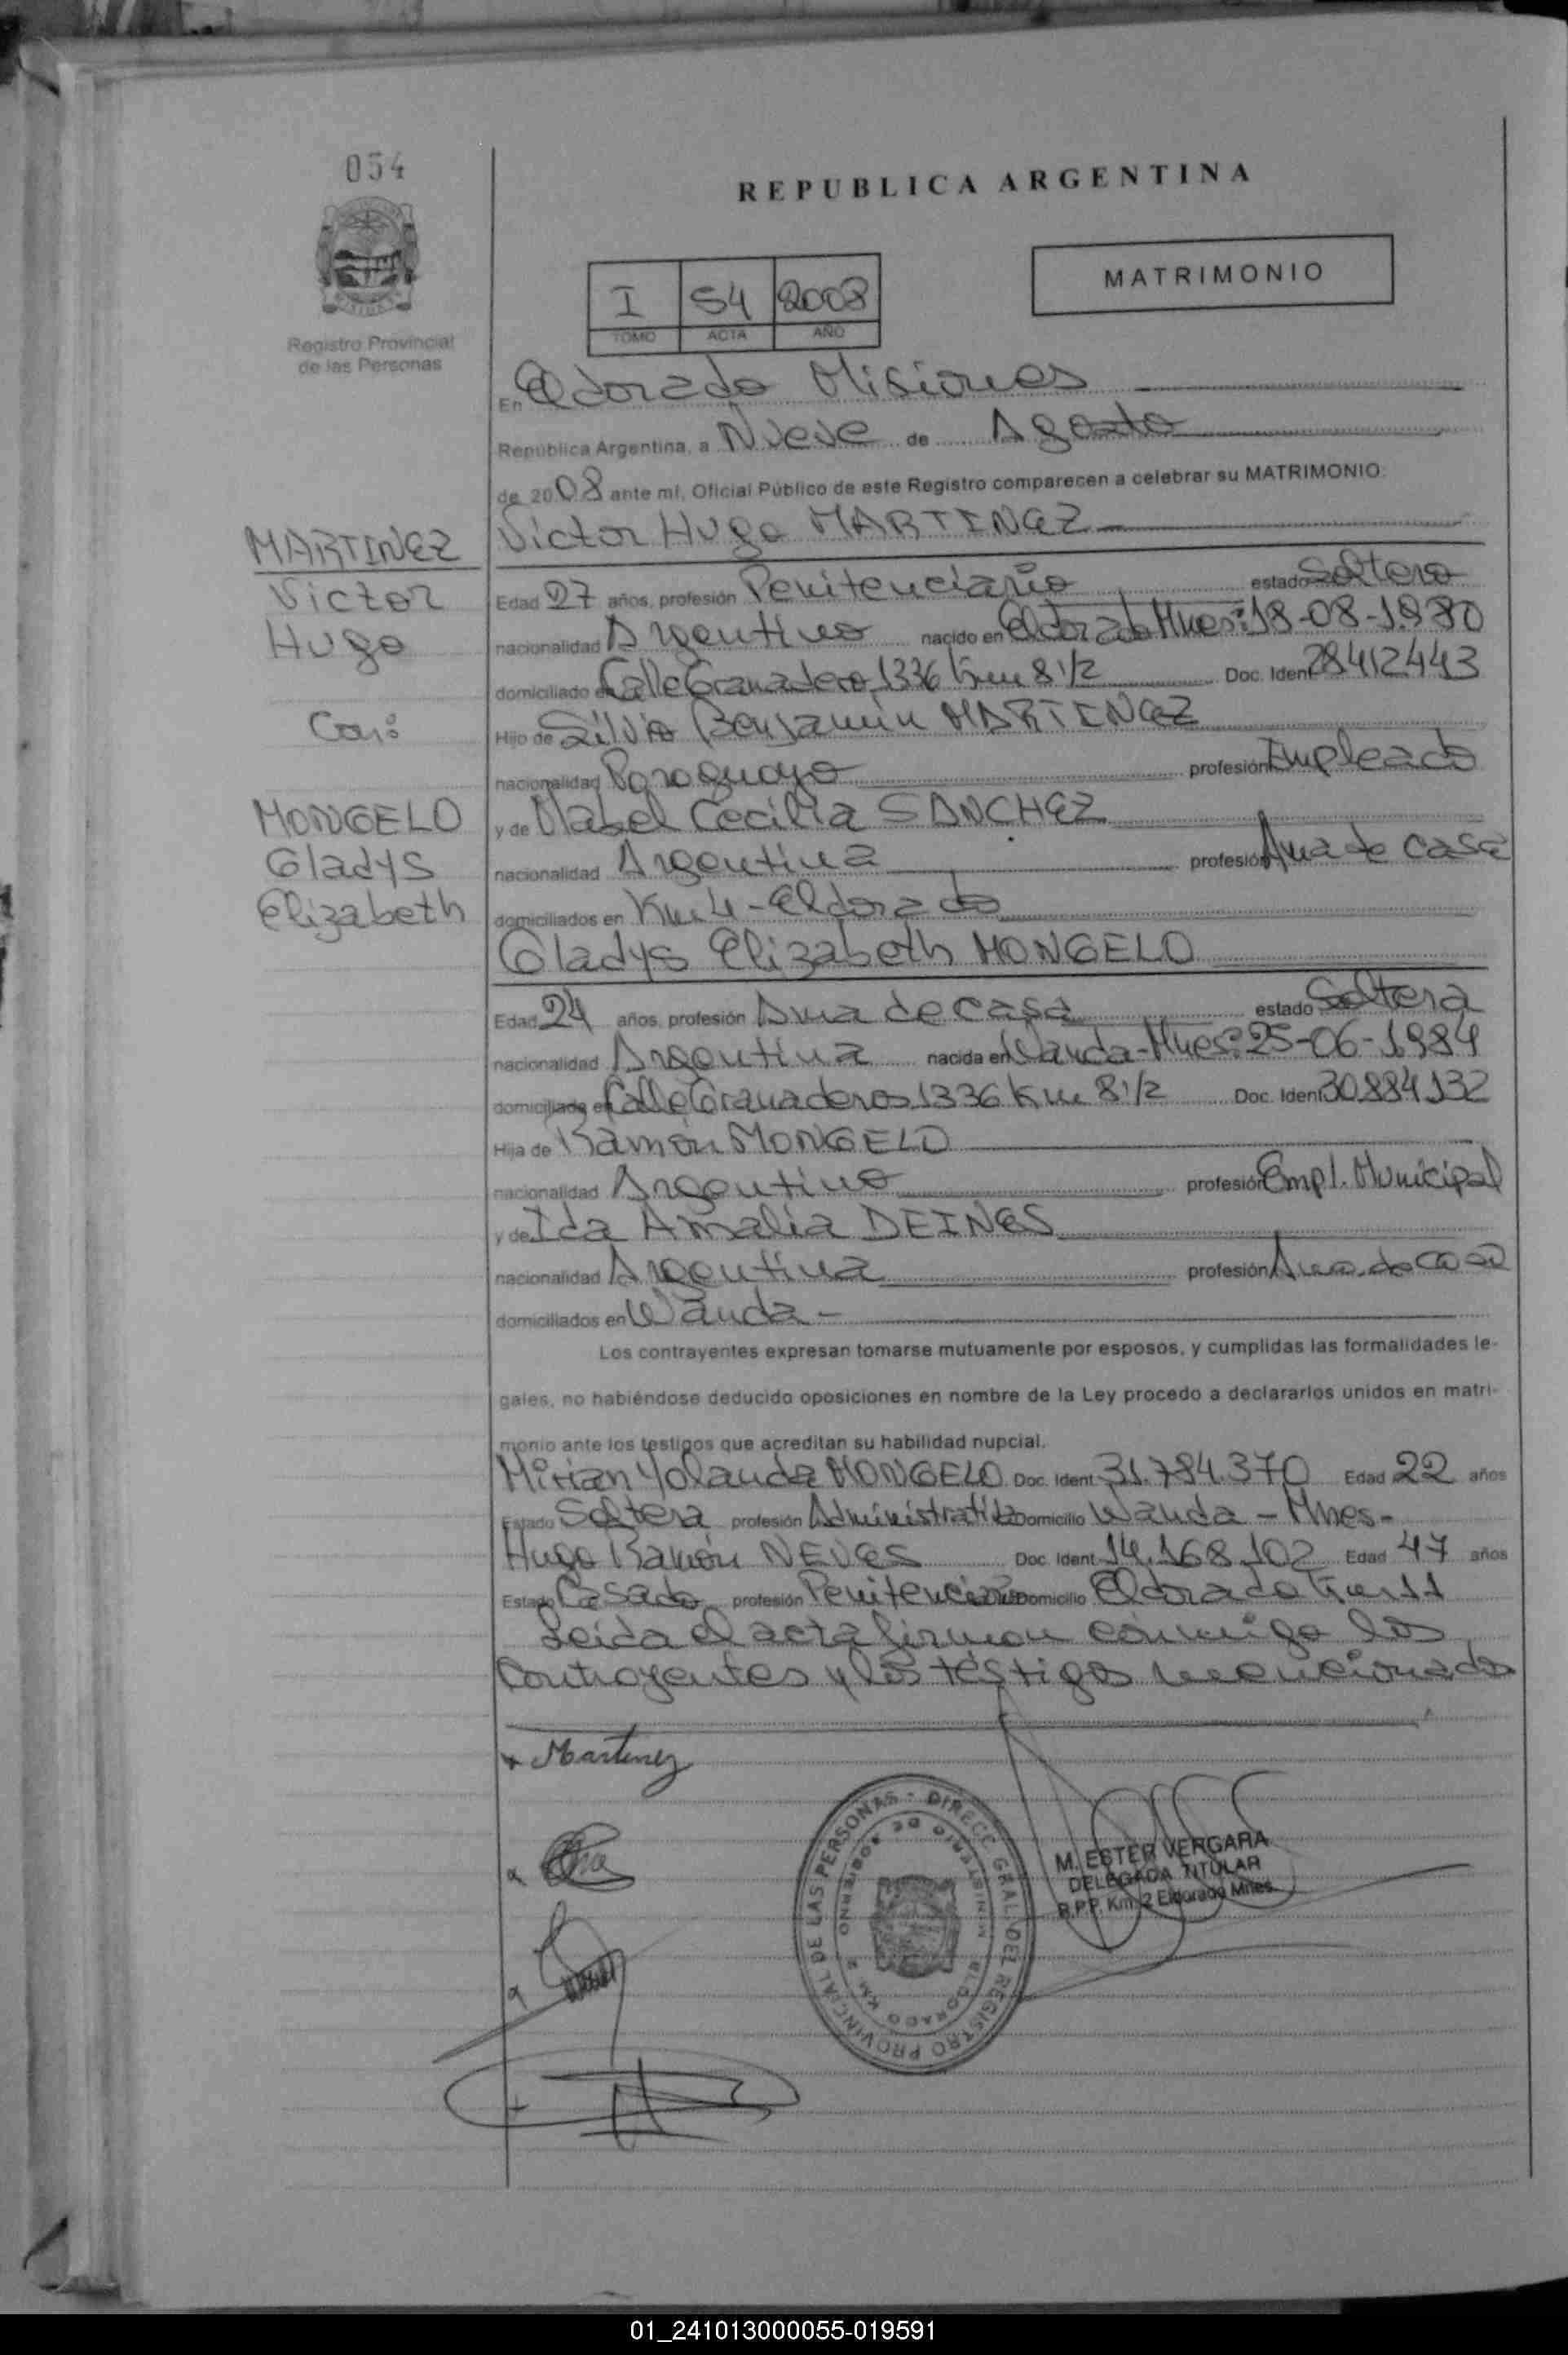 054
REPUBLICA ARGENTINA
MATRIMONIO
I 54 2008
TOMO ACTA AÑO
Registro Provincial
de las Personas
En Eldorado Misiones
República Argentina, a Nueve de Agosto
de 2008 ante mí, Oficial Público de este Registro comparecen a celebrar su MATRIMONIO:
Victor Hugo MARTINEZ
MARTINEZ
Victor
Hugo
Con:
MONGELO
Gladys
Elizabeth
Edad 27 años, profesión Penitenciario estado Soltero
nacionalidad Argentino nacido en Eldorado Mnes: 18-08-1.980
domiciliado en Calle Granadero 1336 Km 8 1/2 Doc. Ident 28412443
Hijo de Silvio Benjamin MARTINEZ
nacionalidad Paraguayo profesión Empleado
y de Mabel Cecilia SANCHEZ
nacionalidad Argentina profesión Ama de casa
domiciliados en Km 4 - Eldorado
Gladys Elizabeth MONGELO
Edad 24 años, profesión Ama de casa estado Soltera
nacionalidad Argentina nacida en Wanda-Mnes: 25-06-1.984
domiciliada en Calle Granaderos 1336 Km 8 1/2 Doc. Ident 30.884.132
Hija de Ramón MONGELO
nacionalidad Argentino profesión Empl. Municipal
y de Ida Amalia DEINES
nacionalidad Argentina profesión Ama de casa
domiciliados en Wanda -
Los contrayentes expresan tomarse mutuamente por esposos, y cumplidas las formalidades le-
gales, no habiéndose deducido oposiciones en nombre de la Ley procedo a declararlos unidos en matri-
monio ante los testigos que acreditan su habilidad nupcial.
Mirian Yolanda MONGELO Doc. Ident 31.784.370 Edad 22 años
Estado Soltera profesión Administrativa Domicilio Wanda - Mnes-
Hugo Ramón NEVES Doc. Ident 14.168.102 Edad 47 años
Estado Casado profesión Penitenciario Domicilio Eldorado Km 11
Leida el acta firman conmigo los
Contrayentes y los testigos mencionados
Martinez
M. ESTER VERGARA
DELEGADA TITULAR
R.P.P. Km. 2 Eldorado Mnes.
DIRECC. GRAL. DEL REGISTRO PROVINCIAL DE LAS PERSONAS
MINISTERIO DE GOBIERNO
ELDORADO KM 2
01_241013000055-019591